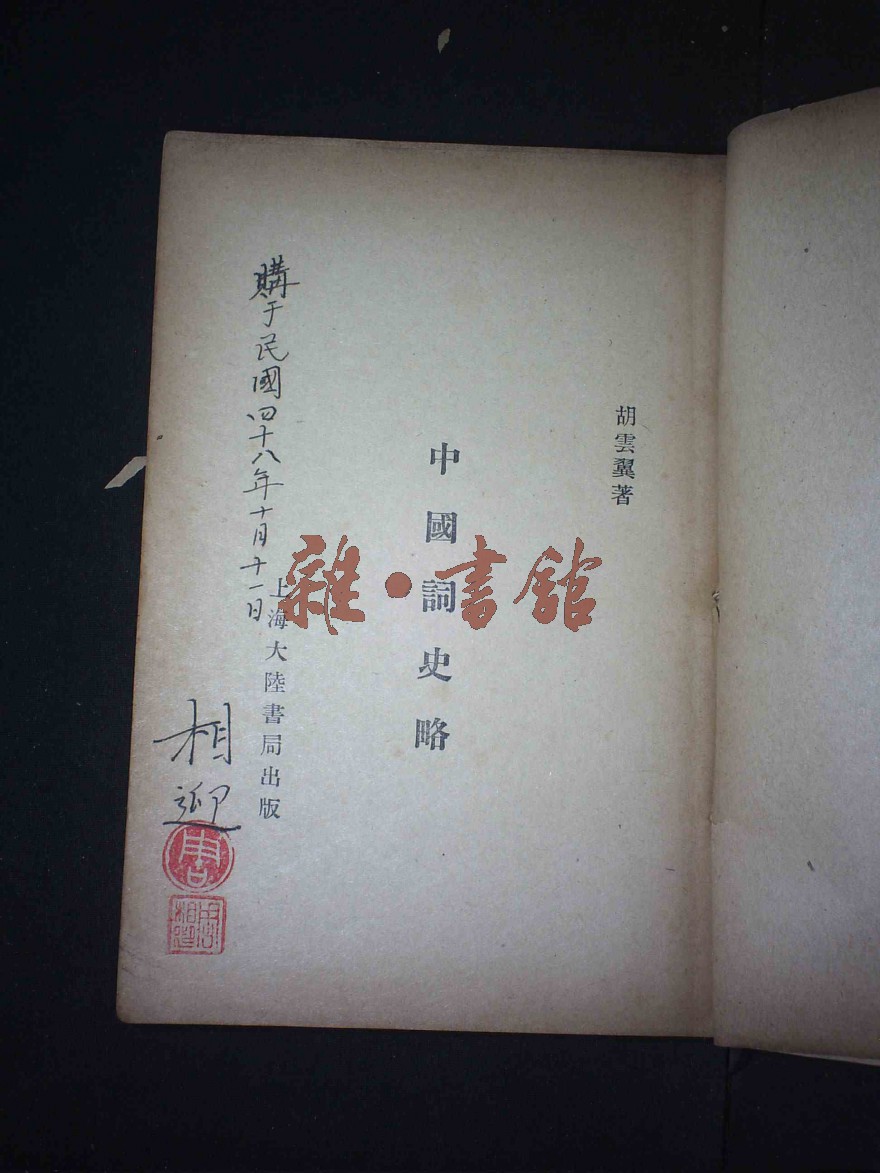 胡雲翼著
中國詞史略
上海大陸書局出版
購于民國四十八年十月十一日
相迎
雜·書館